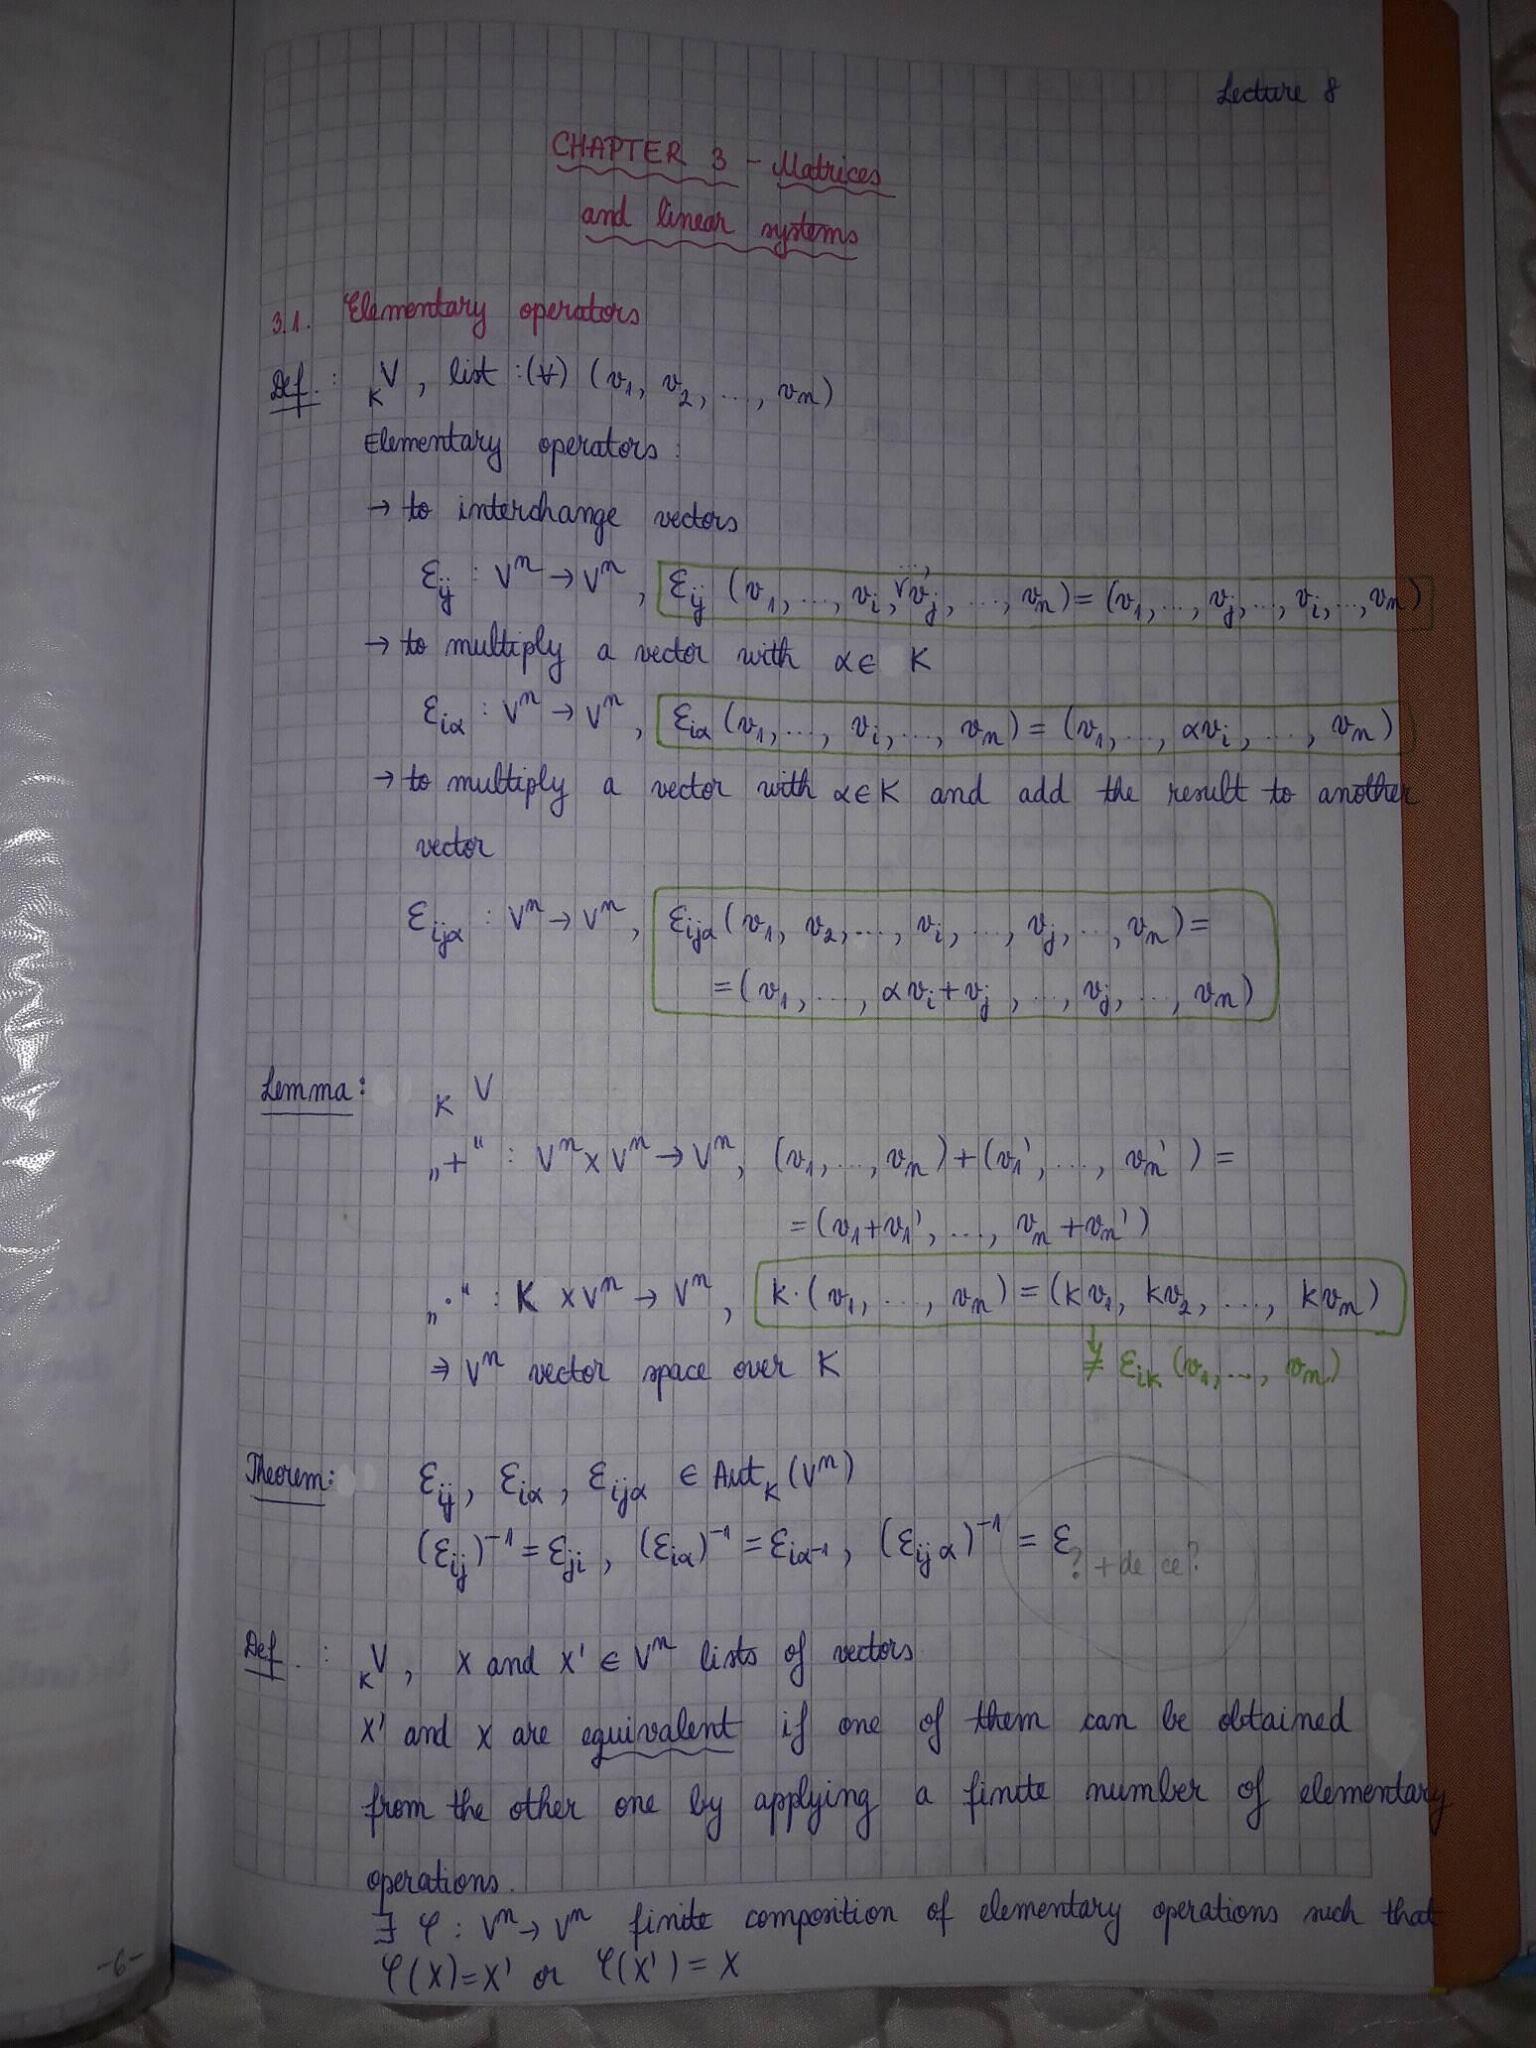 Lecture 8
CHAPTER 3 - Matrices
and linear systems
3.1. Elementary operators
Def. : ₖV, list : (∀) (v₁, v₂, ..., vₙ)
Elementary operators :
→ to interchange vectors
εᵢⱼ : Vⁿ → Vⁿ, εᵢⱼ (v₁, ..., vᵢ, ..., vⱼ, ..., vₙ) = (v₁, ..., vⱼ, ..., vᵢ, ..., vₙ)
→ to multiply a vector with α ∈ K
ε_{iα} : Vⁿ → Vⁿ, ε_{iα} (v₁, ..., vᵢ, ..., vₙ) = (v₁, ..., αvᵢ, ..., vₙ)
→ to multiply a vector with α ∈ K and add the result to another
vector
ε_{ijα} : Vⁿ → Vⁿ, ε_{ijα} (v₁, v₂, ..., vᵢ, ..., vⱼ, ..., vₙ) =
= (v₁, ..., αvᵢ + vⱼ, ..., vⱼ, ..., vₙ)
Lemma : ₖV
„+“ : Vⁿ × Vⁿ → Vⁿ, (v₁, ..., vₙ) + (v₁', ..., vₙ') =
= (v₁ + v₁', ..., vₙ + vₙ')
„·“ : K × Vⁿ → Vⁿ, k · (v₁, ..., vₙ) = (kv₁, kv₂, ..., kvₙ)
⇒ Vⁿ vector space over K ↓ ≠ ε_{ik} (v₁, ..., vₙ)
Theorem : εᵢⱼ, ε_{iα}, ε_{ijα} ∈ Autₖ (Vⁿ)
(εᵢⱼ)⁻¹ = εⱼᵢ, (ε_{iα})⁻¹ = ε_{iα⁻¹}, (ε_{ijα})⁻¹ = ε ? + de ce?
Def. : ₖV, X and X' ∈ Vⁿ lists of vectors
X' and X are equivalent if one of them can be obtained
from the other one by applying a finite number of elementary
operations.
∃ φ : Vⁿ → Vⁿ finite composition of elementary operations such that
φ(X) = X' or φ(X') = X
-6-